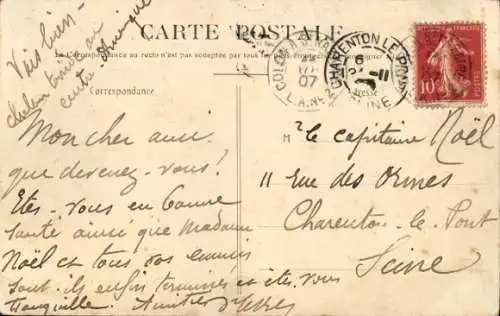 Vais bien
CARTE POSTALE
La Correspondance au recto n'est pas acceptée par tous les
Correspondance
Adresse
CHARENTON LE PONT
SEINE
07
10
Mon cher ami
que devenez-vous!
Etes-vous en bonne
santé ainsi que Madame
Noël et tous vos ennuis
sont-ils enfin terminés et êtes vous
tranquille. Amitiés
Mr le capitaine Noël
11 rue des Ormes
Charenton-le-Pont
Seine